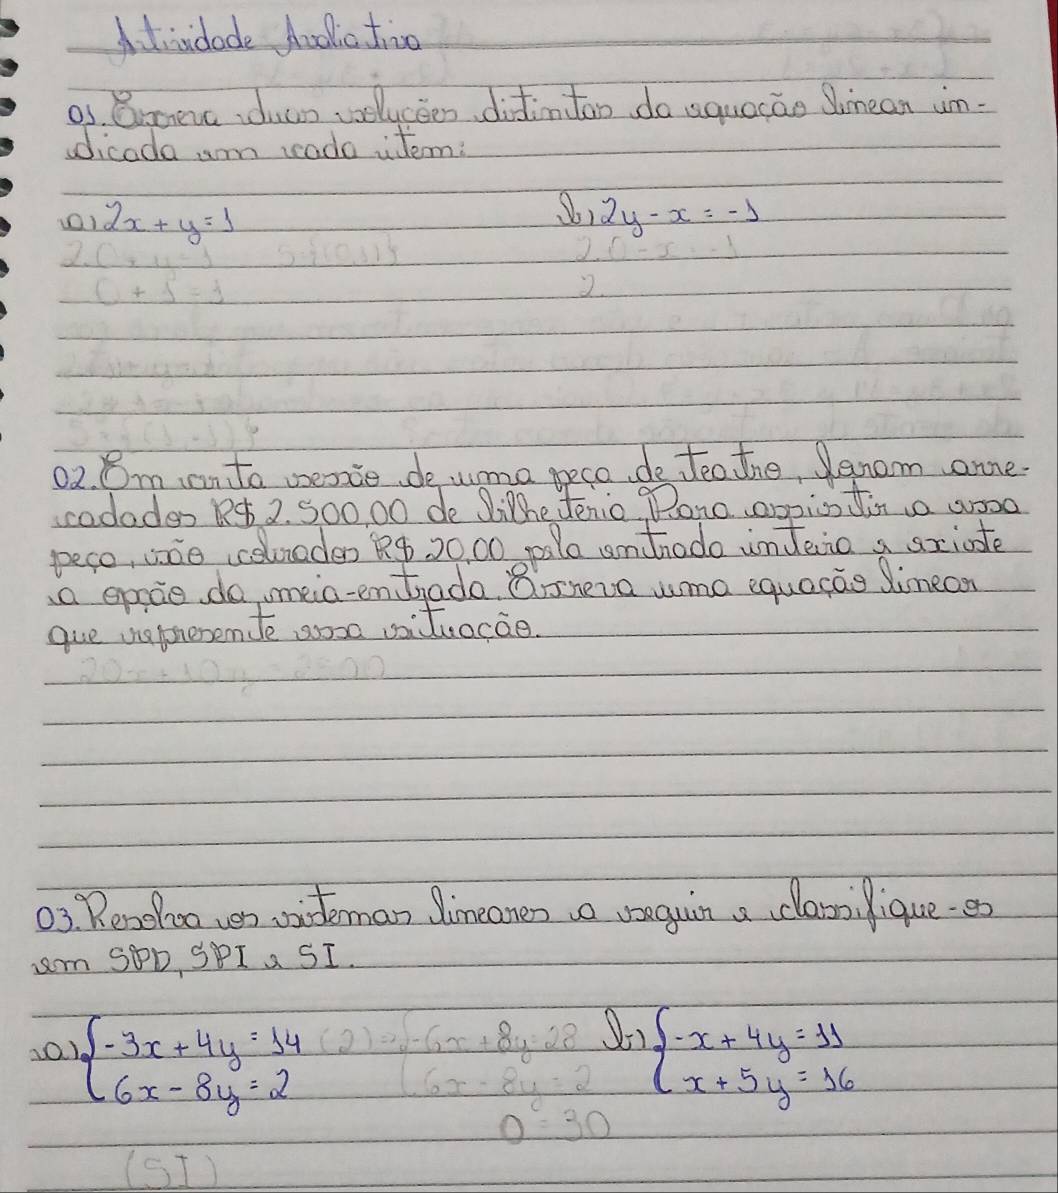 Atividade Avaliativa
01. Escreva duas soluções distintas da equação linear in-
dicada em cada item:
a) 2x + y = 1 b) 2y - x = -1
2.0 + y = 1 S = {(0,1)} 2.0 - x = -1
0 + 1 = 1 2.
S = {(1,-1)}
02. Em certa sessão de uma peça de teatro, foram arre-
cadados R$ 2.500,00 de bilheteria. Para assistir a essa
peça, são cobrados R$ 20,00 pela entrada inteira e existe
a opção da meia-entrada. Escreva uma equação linear
que represente essa situação.
20x + 10y = 2500
03. Resolva os sistemas lineares a seguir e classifique-os
em SPD, SPI e SI.
a) { -3x + 4y = 14 (2) => { -6x + 8y = 28 b) { -x + 4y = 11
6x - 8y = 2 6x - 8y = 2 x + 5y = 16
0 = 30
(SI)